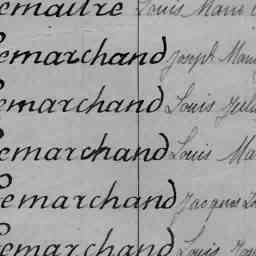 emaitre Louis Marie
Lemarchand Joseph Marie
Lemarchand Louis Jul
Lemarchand Louis Ma
Lemarchand Jacques Lo
Lemarchand Louis